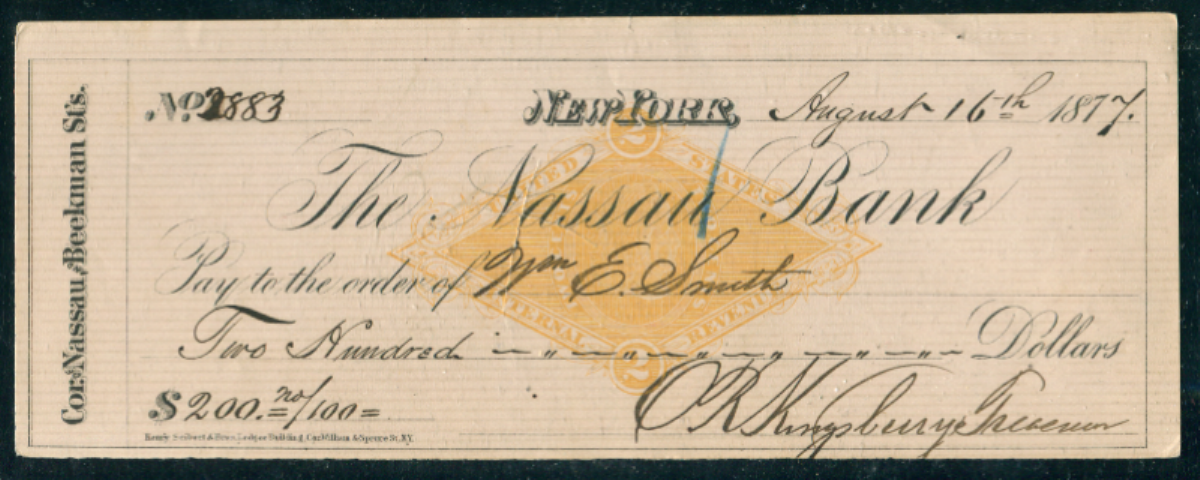 Cor. Nassau & Beekman Sts.
No. 2883 NEW YORK, August 16th 1877.
2
UNITED STATES
The Nassau Bank
Pay to the order of Wm E. Smith
INTERNAL REVENUE
Two Hundred — " — " — " — " — " — " — Dollars
2
$ 200. no/100 =
O R Kingsbury Treasurer
Henry Seibert & Bros. Ledger Building, Cor. William & Spruce St. N.Y.